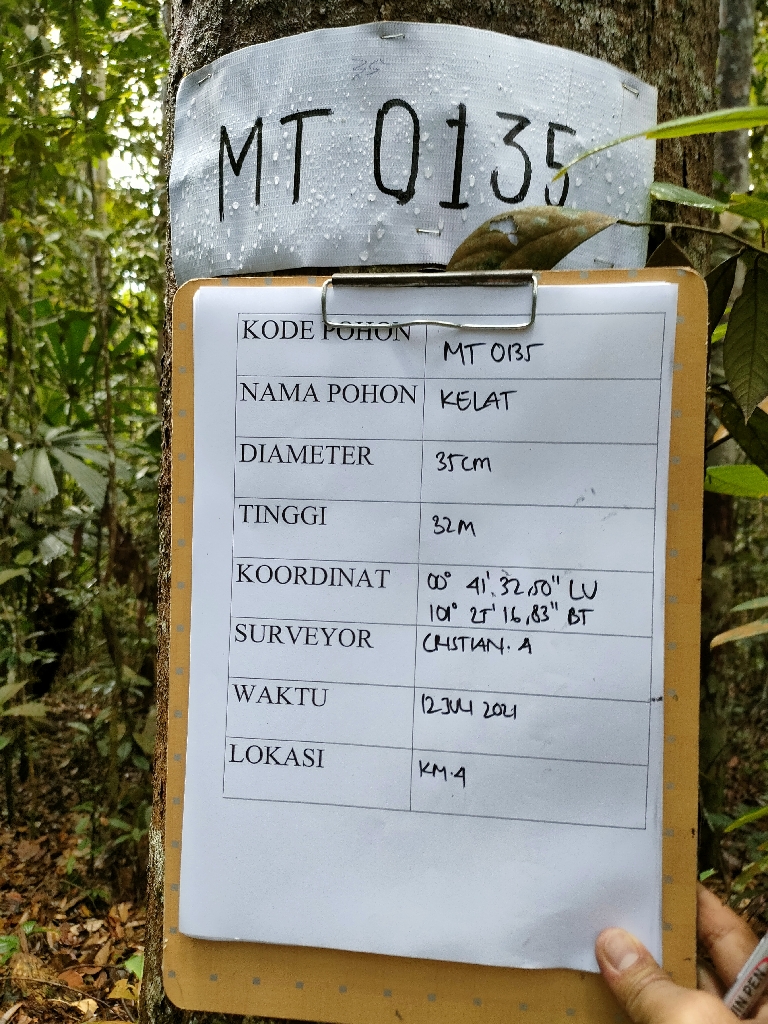 MT 0135
KODE POHON MT 0135
NAMA POHON KELAT
DIAMETER 35cm
TINGGI 32M
KOORDINAT 00° 41'. 32,50" LU
101° 25' 16,83" BT
SURVEYOR CRISTIAN. A
WAKTU 12 JULI 2021
LOKASI KM.4
IN PEN